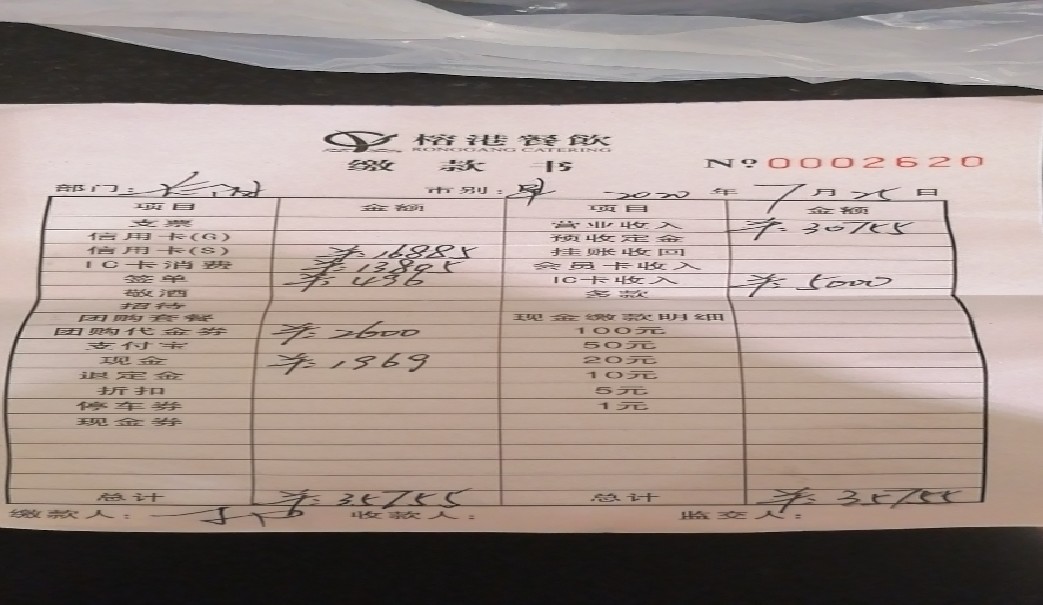 榕港餐飲
RONGGANG CATERING
缴款书 Nº 0002620
部门: 市别: 早 2020 年 7 月 25 日
项目 金额 项目 金额
支票 营业收入 ¥: 30755
信用卡(G) 预收定金
信用卡(S) ¥: 16885 挂账收回
IC卡消费 ¥: 13805 会员卡收入
签单 ¥: 496 IC卡收入 ¥: 5000
敬酒 多款
招待
团购套餐 现金缴款明细
团购代金券 ¥: 2600 100元
支付卡 50元
现金 ¥: 1969 20元
退定金 10元
折扣 5元
停车券 1元
现金券
总计 ¥: 35755 总计 ¥: 35755
缴款人: 收款人: 监交人: